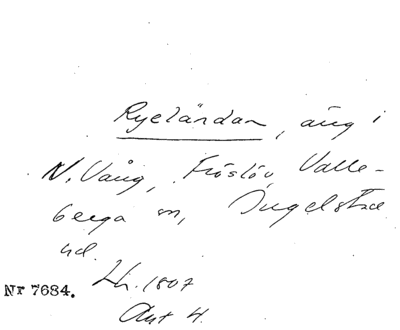 Ryeländan, äng i
N. Vång, Fröslöv, Valle-
berga sn, Ingelstad
hd.
Lh. 1807
Akt 4.
Nr 7684.